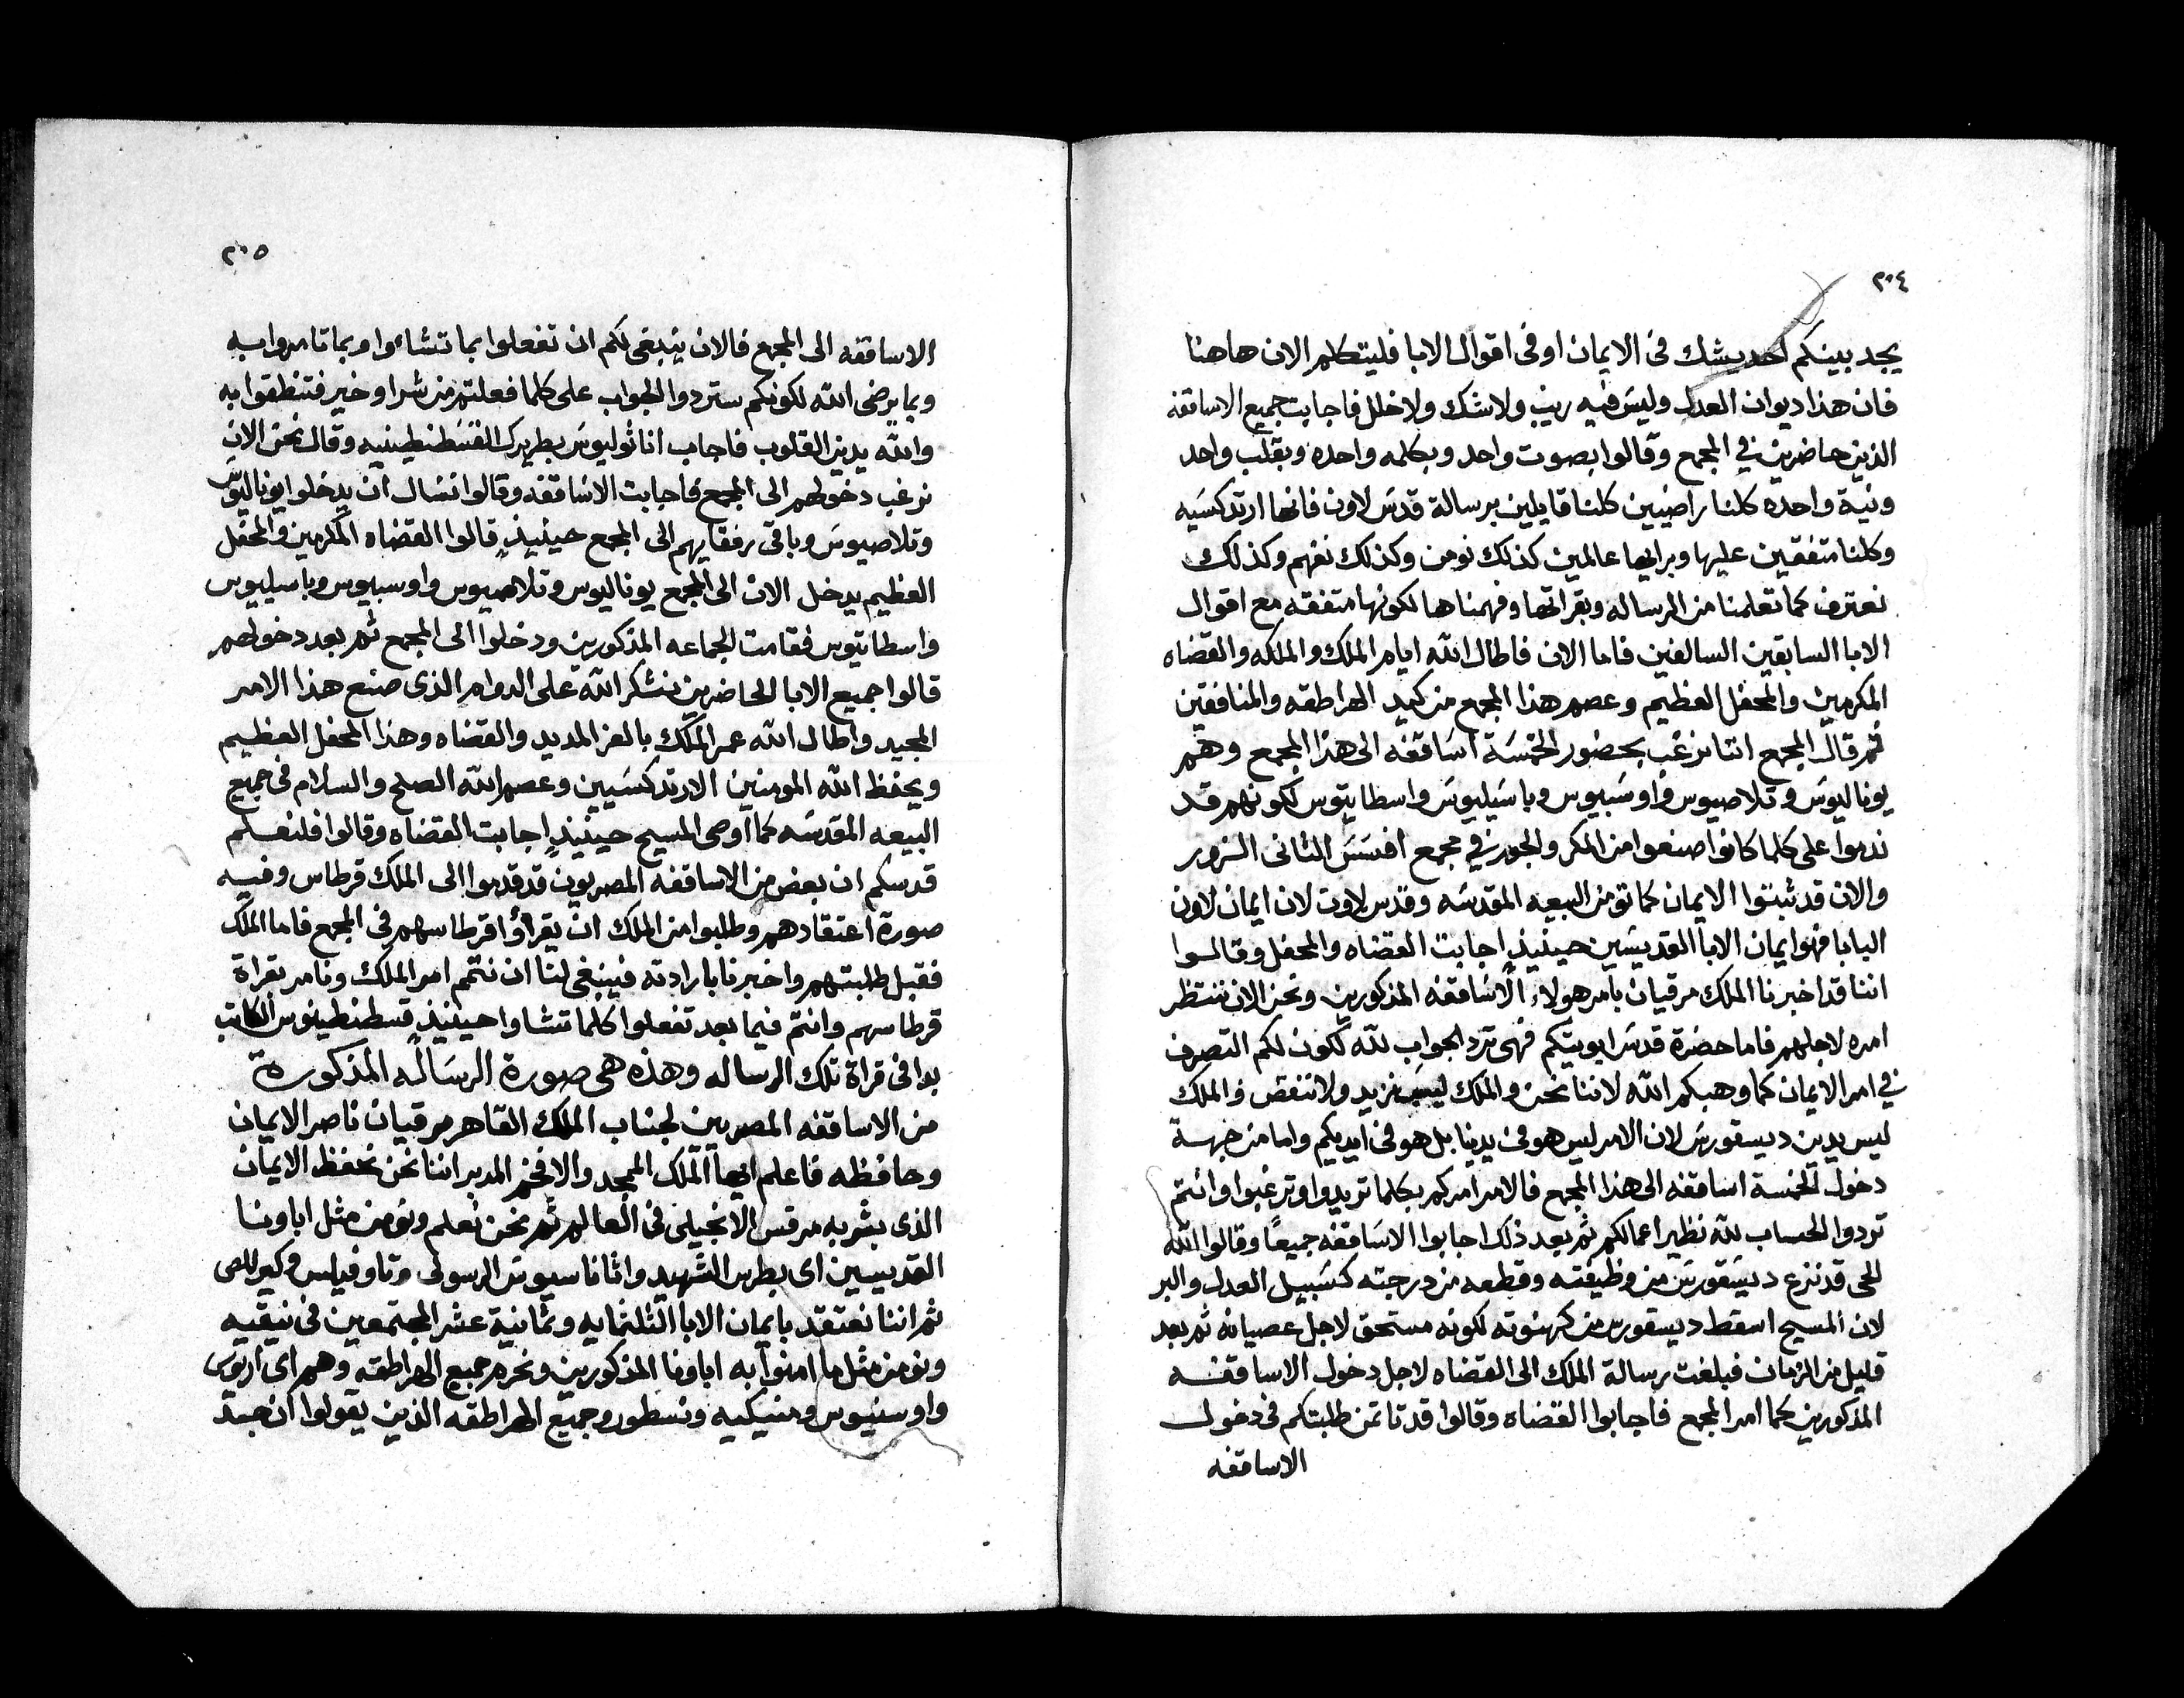 ٢٠٤
يجد بينكم احد يشك فى الايمان او فى اقوال الابا فليتكلم الان هاهنا
فان هذا ديوان العدل وليس فيه ريب ولا شك ولا خلل فاجابت جميع الاساقفه
الذين حاضرين في المجمع وقالوا بصوت واحد وبكلمه واحده وبقلب واحد
ونية واحده كلنا راضيين كلنا قايلين برسالة قدس لاون فانها ارتدكسيه
وكلنا متفقين عليها وبرايها عالمين كذلك نومن وكذلك نفهم وكذلك
نعترف كما تعلمنا من الرساله وبقراتها وفهمناها لكونها متفقه مع اقوال
الابا السابقين السالفين فاما الان فاطال الله ايام الملك والملكه والقضاه
المكرمين والمحفل العظيم وعصم هذا المجمع من كيد الهراطقه والمنافقين
ثم قال المجمع اننا نرغب بحضور الخمسة اساقفه الى هذا المجمع وهم
يوناليوس وتلاصيوس واوسبيوس وباسيليوس واسطاتيوس لكونهم قد
ندموا على كلما كانوا صنعوا من المكر والجور في مجمع افسس الثانى الزور
والان قد ثبتوا الايمان كما تومن البيعه المقدسه وقدس لاون لان ايمان لاون
البابا فهو ايمان الابا القديسين حينيذٍ اجابت القضاه والمحفل وقالوا
اننا قد اخبرنا الملك مرقيان بامر هولاء الاساقفه المذكورين ونحن الان ننتظر
امره لاجلهم فاما حضرة قدس ابويتكم فهى ترد الجواب لله لكون لكم التصرف
في امر الايمان كما وهبكم الله لاننا نحن والملك ليس نزيد ولا ننقص والملك
ليس يدين ديسقورس لان الامر ليس هو فى يدينا بل هو فى ايديكم واما من جهة
دخول الخمسة اساقفه الى هذا المجمع فالامر امركم بكلما تريدوا وترغبوا وانتم
تردوا الحساب لله نظير اعمالكم ثم بعد ذلك اجابوا الاساقفه جميعًا وقالوا الله
الحى قد نزع ديسقورس من وظيفته وقطعه من درجته كسبيل العدل والبر
لان المسيح اسقط ديسقورس من كهنوته لكونه مستحق لاجل عصيانه ثم بعد
قليل من الزمان فبلغت رسالة الملك الى القضاه لاجل دخول الاساقفه
المذكورين كما امر المجمع فاجابوا القضاه وقالوا قد تاتمن طلبتكم فى دخول
الاساقفه
٢٠٥
الاساقفه الى المجمع فالان ينبغى لكم ان تفعلوا بما تشاءوا وبما تامروا به
وبما يرضى الله لكونكم ستردوا الجواب على كلما فعلتم من شر او خير فتنطقوا به
والله يدين القلوب فاجاب اناثوليوس بطريرك القسطنطينيه وقال نحن الان
نرغب دخولهم الى المجمع فاجابت الاساقفه وقالوا نسال ان يدخلوا يوناليوس
وتلاصيوس وباقى رفقايهم الى المجمع حينيذٍ قالوا القضاه المكرمين والمحفل
العظيم يدخل الان الى المجمع يوناليوس وتلاصيوس واوسبيوس وباسيليوس
واسطاتيوس فقامت الجماعه المذكورين ودخلوا الى المجمع ثم بعد دخولهم
قالوا جميع الابا الحاضرين نشكر الله على الدوام الذى صنع هذا الامر
المجيد واطال الله عمر الملك بالعز المديد والقضاه وهذا المحفل العظيم
ويحفظ الله المومنين الارتدكسيين وعصم الله الصلح والسلام فى جميع
البيعه المقدسه كما اوصى المسيح حينيذٍ اجابت القضاه وقالوا فلنعلم
قدسكم ان بعض من الاساقفه المصريون قد قدموا الى الملك قرطاس وفيه
صورة اعتقادهم وطلبوا من الملك ان يقراوا قرطاسهم فى المجمع فاما الملك
فقبل طلبتهم واخبرنا بارادته فينبغى لنا ان نتمم امر الملك ونامر بقراة
قرطاسهم وانتم فيما بعد تفعلوا كلما تشاوا حينيذٍ قسطنطينوس الكاتب
بدا فى قراة تلك الرساله وهذه هى صورة الرساله المذكورة
من الاساقفه المصريين لجناب الملك القاهر مرقيان ناصر الايمان
وحافظه فاعلم ايها الملك الممجد والافخر المدبر اننا نحن نحفظ الايمان
الذى بشر به مرقس الانجيلى فى العالم ثم نحن نعلم ونومن مثل اباونا
القديسين اى بطرس الشهيد واثاناسيوس الرسولى وتاوفيلس وكيرللص
ثم اننا نعتقد بايمان الابا الثلثمايه وثمانية عشر المجتمعين فى نيقيه
ونومن مثل ما امنوا به اباونا المذكورين ونحرم جميع الهراطقه وهم اى اريوس
واوسنيوس ومنيكيه ونسطور وجميع الهراطقه الذين يقولوا ان جسد